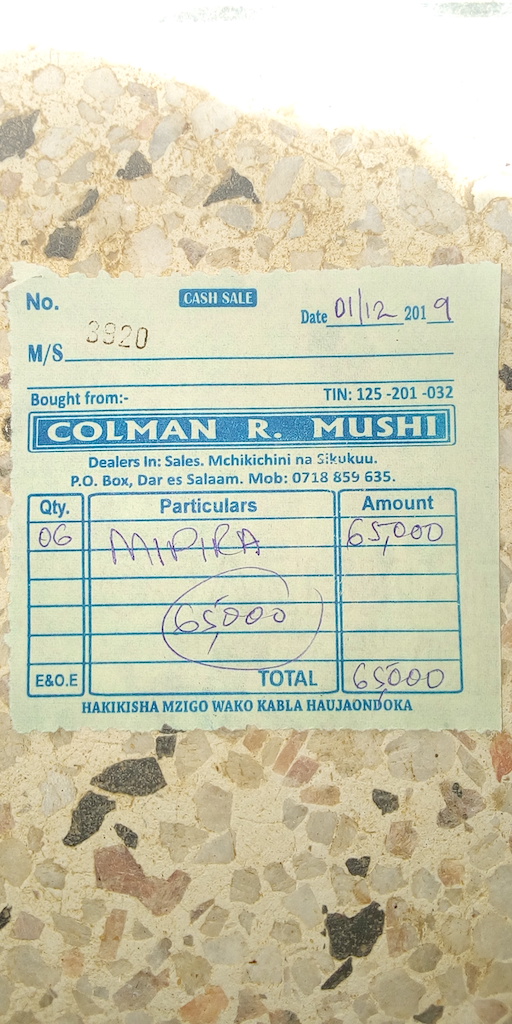 No. CASH SALE
Date 01/12 2019
3920
M/S
Bought from:- TIN: 125 -201 -032
COLMAN R. MUSHI
Dealers In: Sales. Mchikichini na Sikukuu.
P.O. Box, Dar es Salaam. Mob: 0718 859 635.
Qty. Particulars Amount
06 MIPIRA 65,000
65,000
E&O.E TOTAL 65000
HAKIKISHA MZIGO WAKO KABLA HAUJAONDOKA